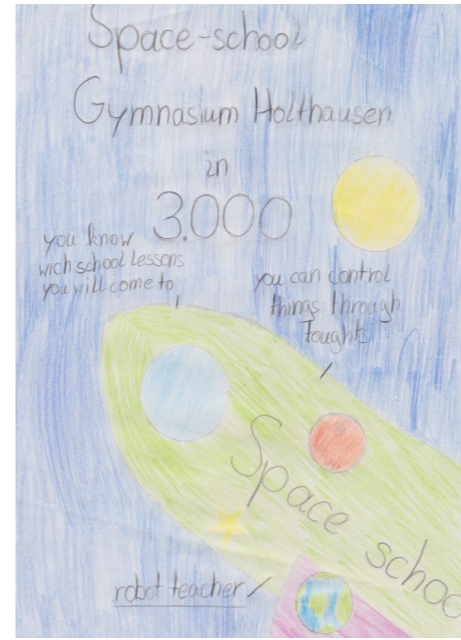 Space-school
Gymnasium Holthausen
in
3.000
you know
wich school lessons
you will come to
you can control
things through
toughts
Space schoo
robot teacher